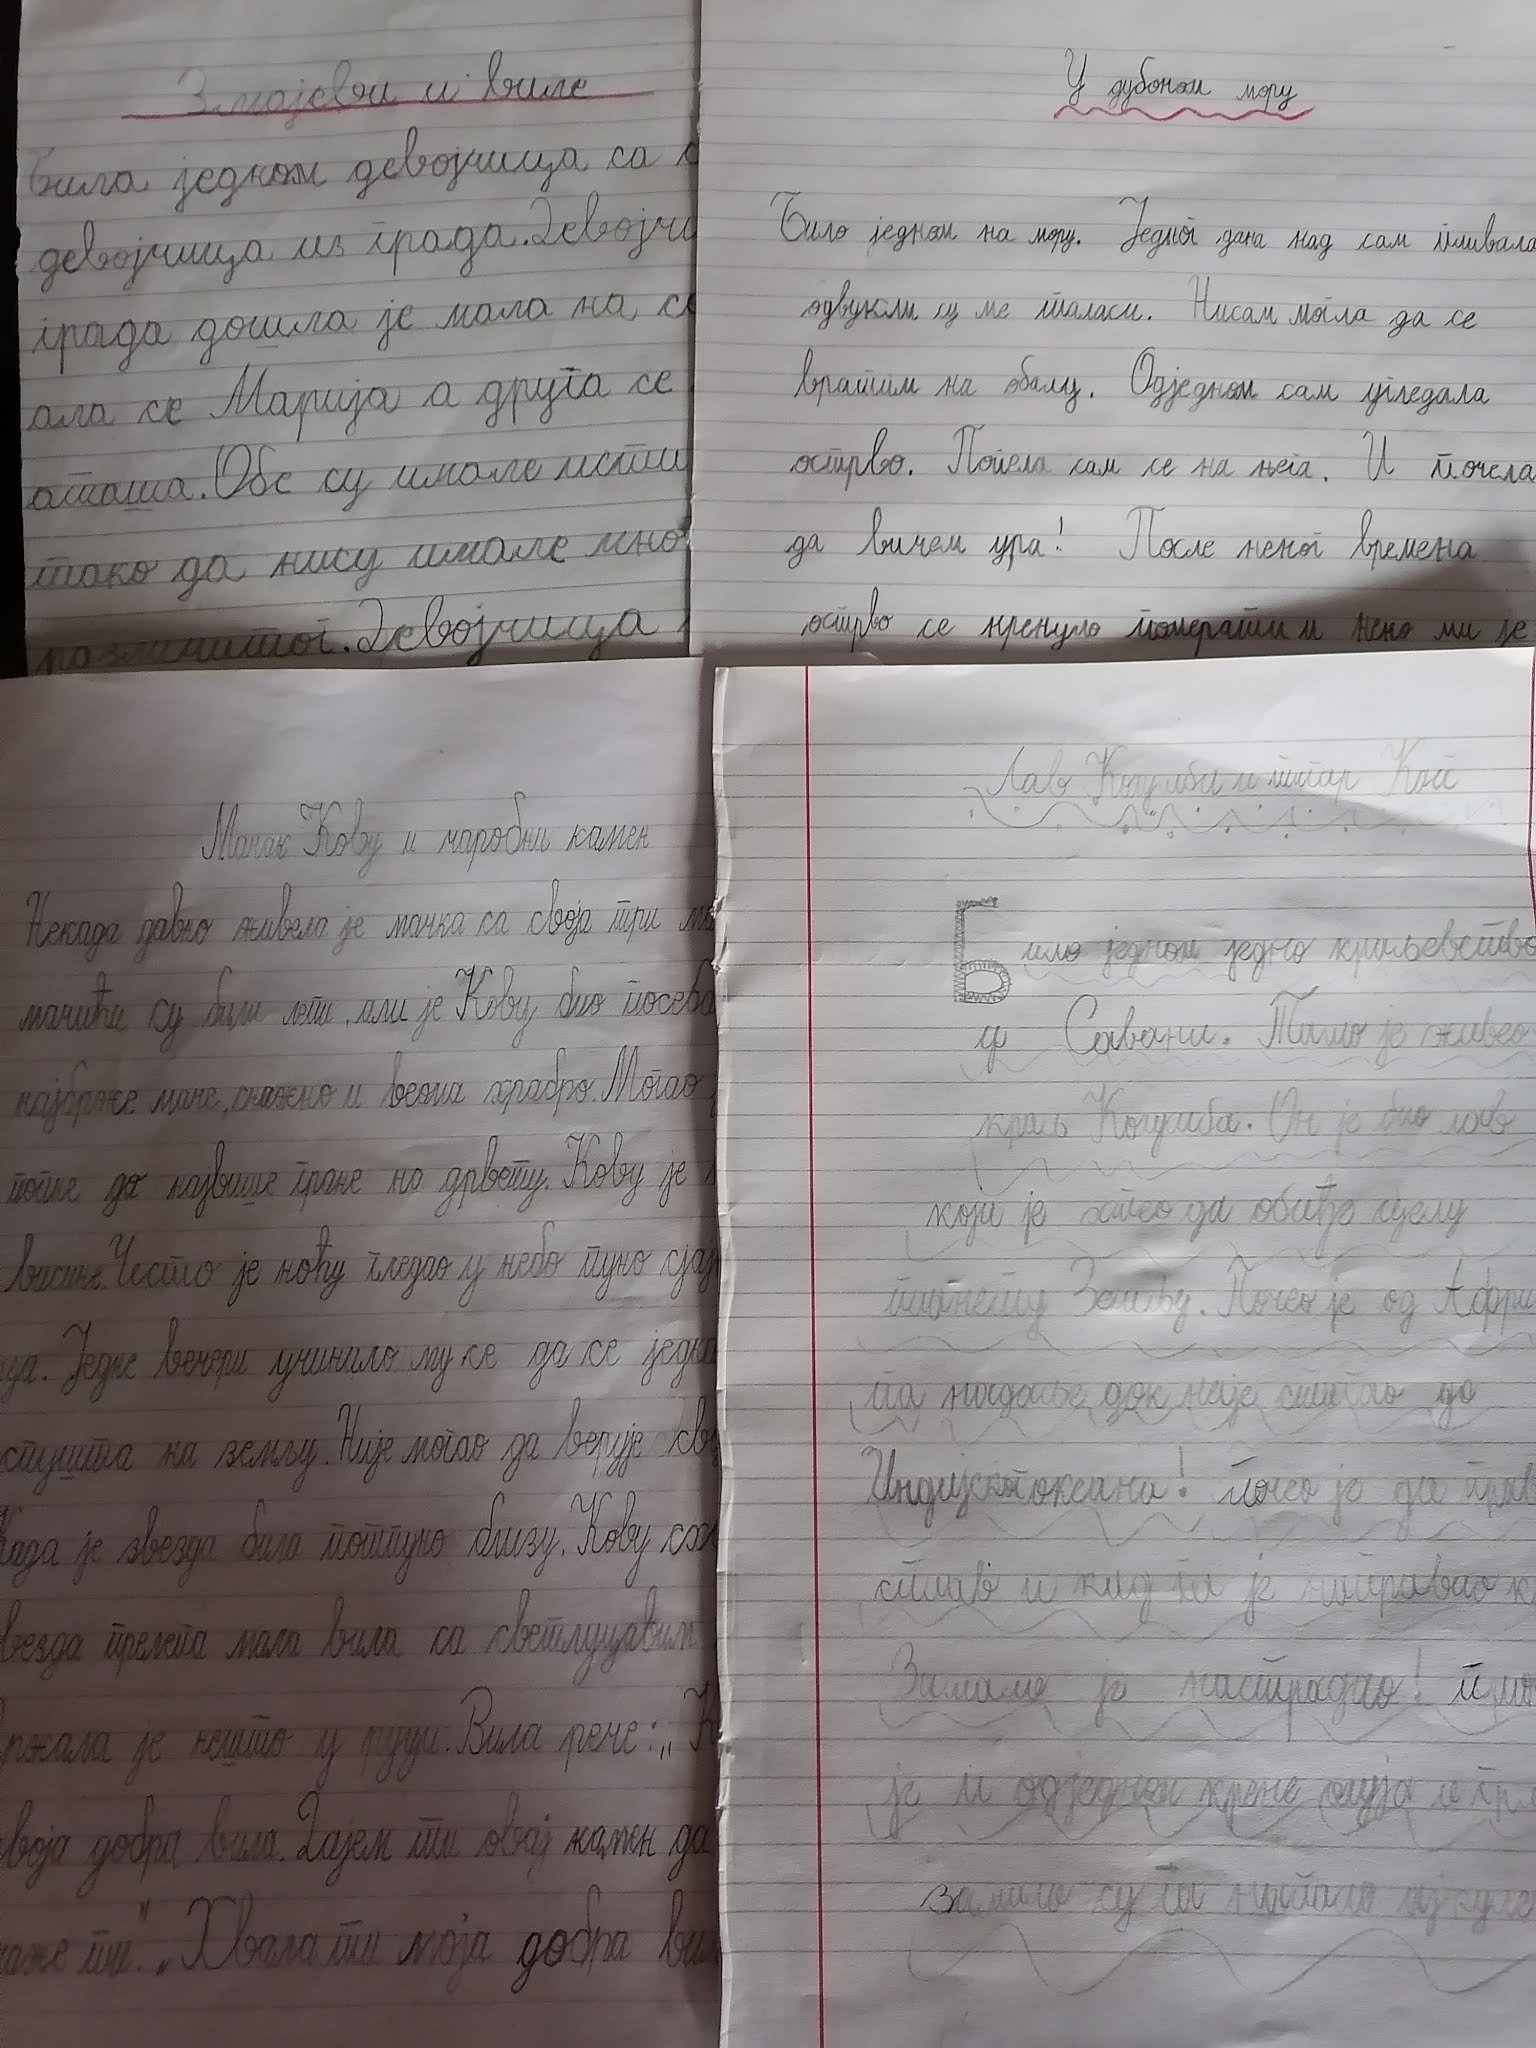 Змајеви и виле
Била једном девојчица са с
девојчица из града. Девојчи
града дошла је мала на се
ала се Марија а друга се
аташа. Обе су имале исти
тако да нису имале мног
различитог. Девојчица
У дубоком мору
Било једном на мору. Једног дана кад сам пливала
одвукли су ме таласи. Нисам могла да се
вратим на обалу. Одједном сам угледала
острво. Попела сам се на њега. И почела
да вичем ура! После неког времена
острво се кренуло померати и неко ми је
Мачак Кову и чаробни камен
Некада давно живела је мачка са своја три ма
мачића су били лепи, али је Кову био посеба
најбрже маче, снажно и веома храбро. Могао
попне до највише гране на дрвету. Кову је
висине. Често је ноћу гледао у небо пуно сјај
да. Једне вечери учинило му се да се једна
спушта на земљу. Није могао да верује
Када је звезда била потпуно близу. Кову сх
везда прелепа мала вила са светлуцавим
ржала је нешто у руци. Вила рече: „К
воја добра вила. Дајем ти овај камен да
аже ти." „Хвала ти моја добра вил
Лав Когумба и тигар Кои
Било једном једно краљевство
у Савани. Тамо је живео
краљ Когумба. Он је био лав
који је хтео да обиђе целу
планету Земљу. Почео је од Афри
па надаље док није стигао до
Индијског океана! Почео је да прав
сплав и кад га је направио к
Замало је настрадао! Прош
је и одједном крене олуја и
Замало су га напале ајкуле